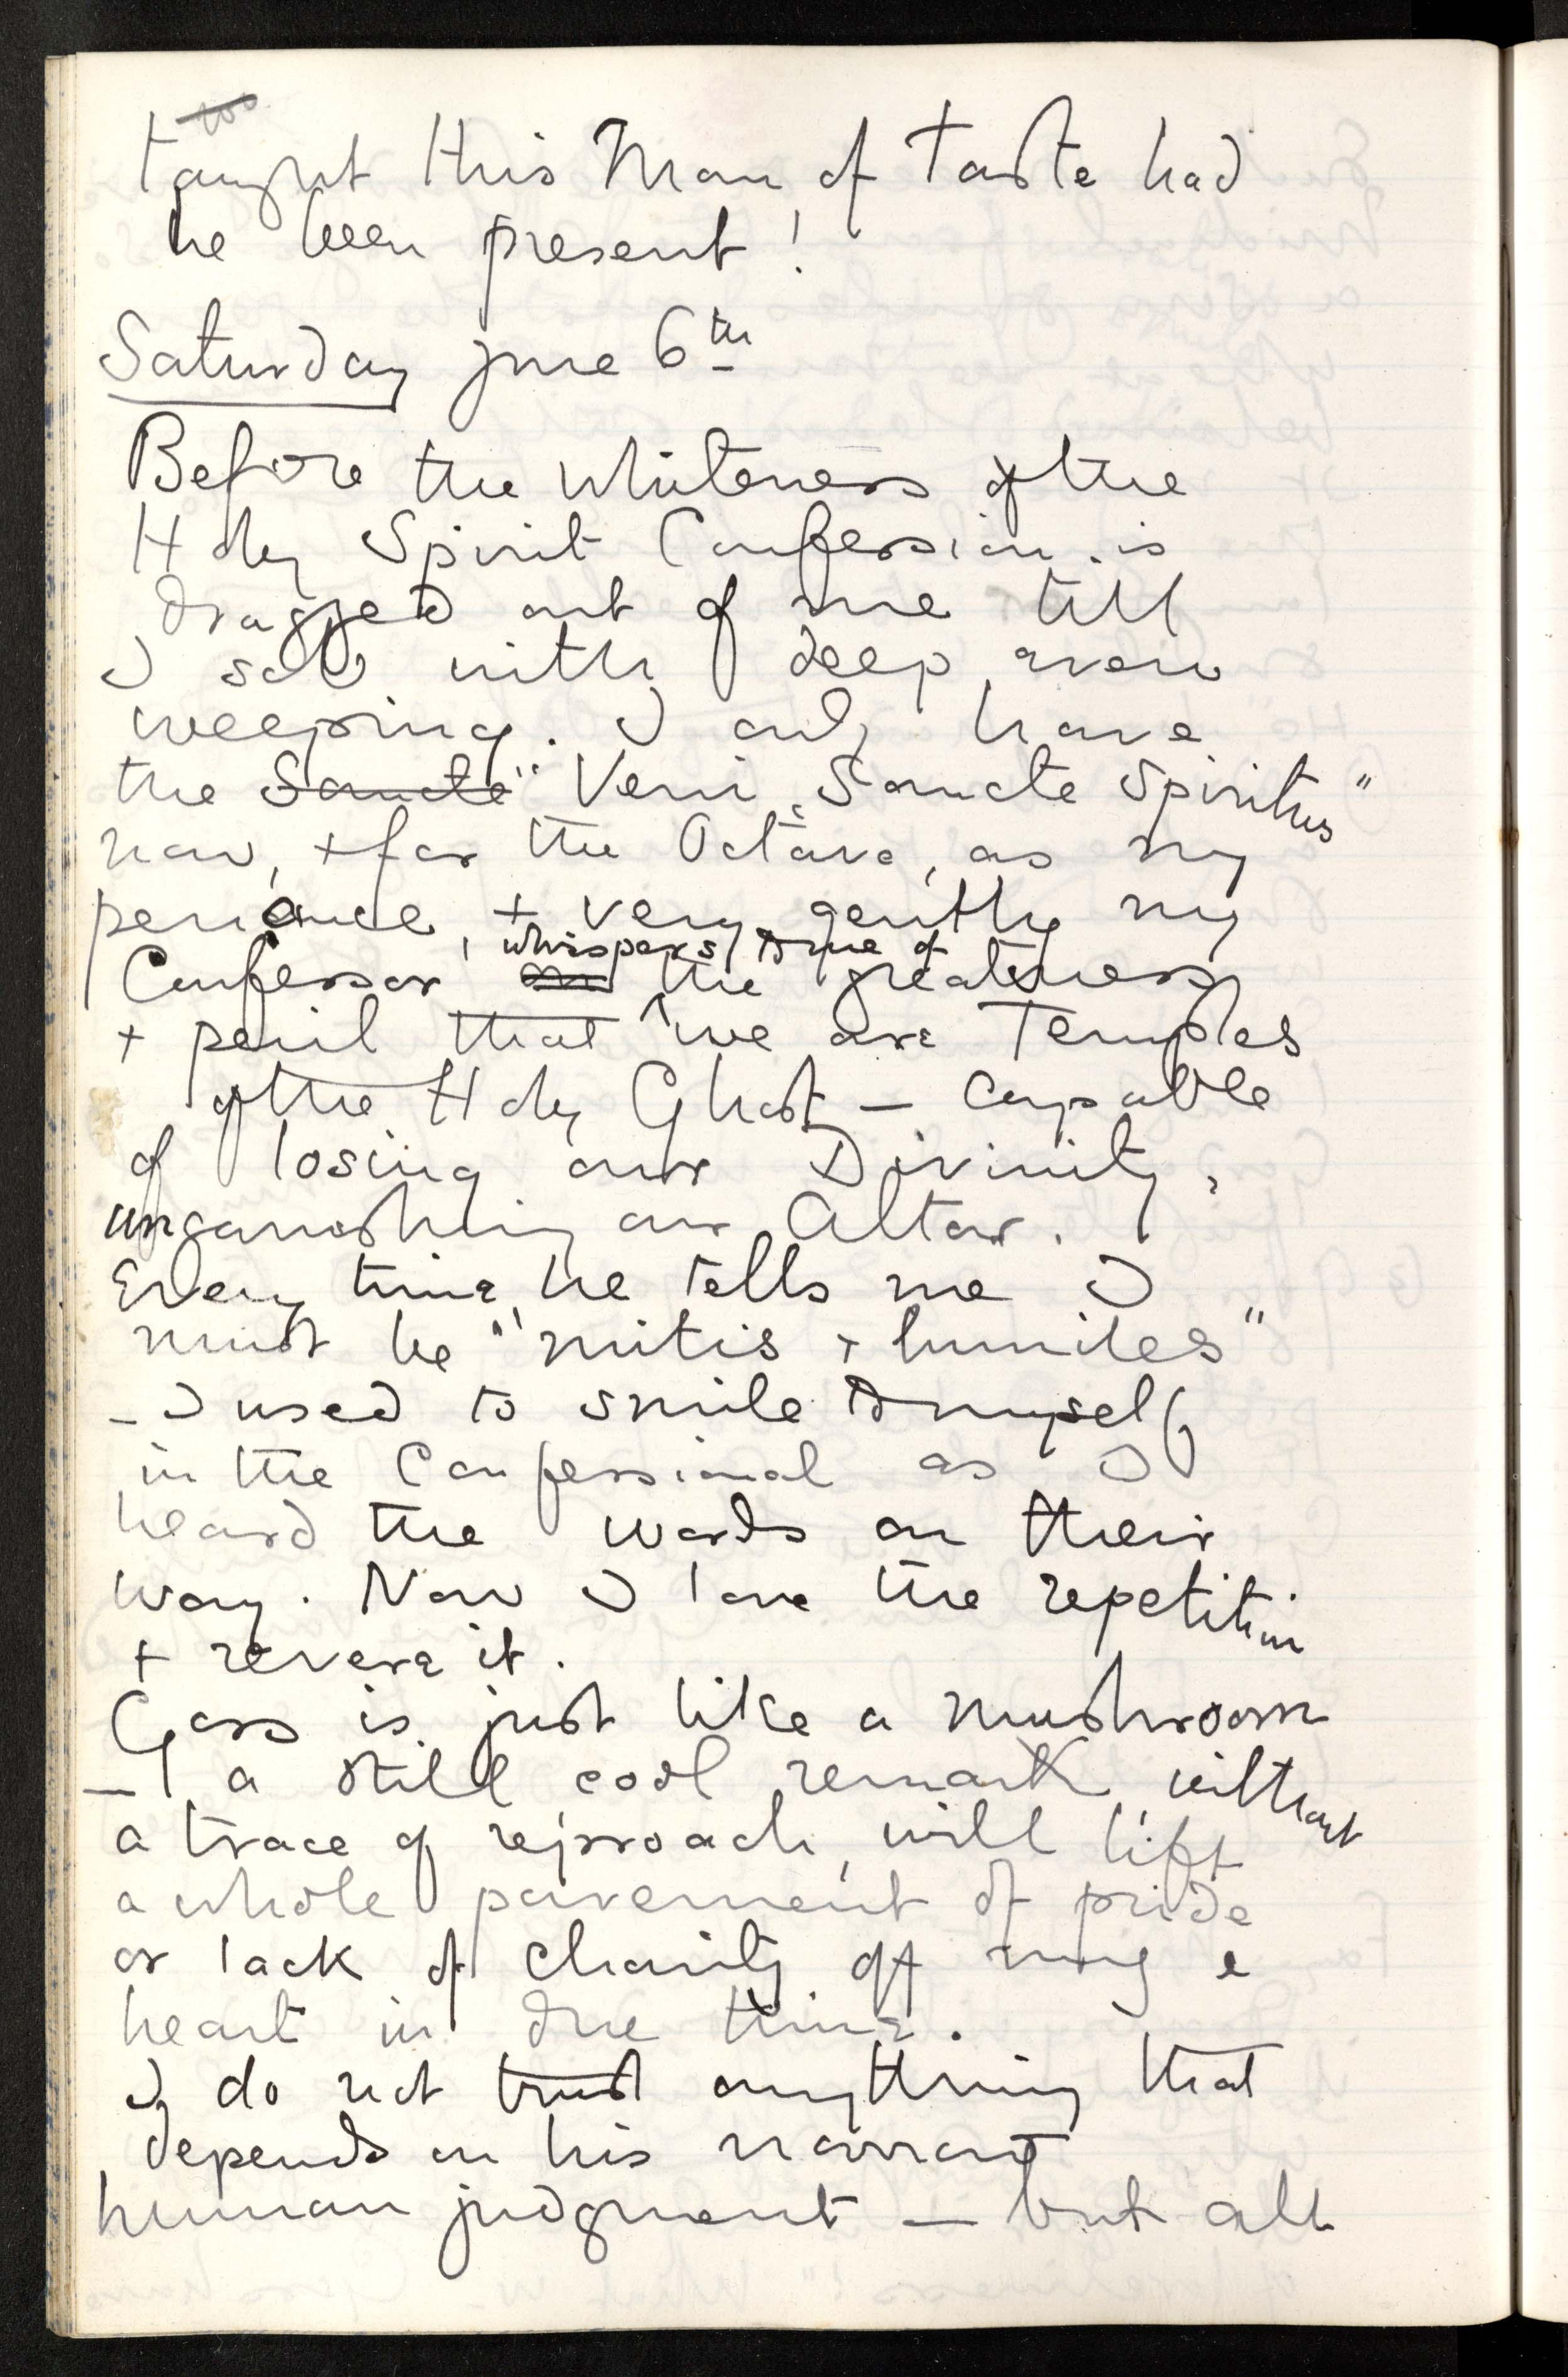 taught this Man of Taste had
he been present!
Saturday June 6th
Before the Whiteness of the
Holy Spirit Confession is
dragged out of me till
I sob with deep, even
weeping. I only have
the Sancte "Veni Sancte Spiritus"
now, + for the Octave, as my
penance, + very gently my
Confessor, whispers to me of the greatness
+ peril that we are Temples
of the Holy Ghost – capable
of losing our Divinity,
ungarnishing our Altar.
Every time, he tells me I
must be "mitis + humiles"
– I used to smile to myself
in the Confessional as I
heard the words on their
way. Now I love the repetition
+ revere it.
Goss is just like a mushroom
– a still cool remark, without
a trace of reproach, will lift
a whole pavement of pride
or lack of charity off my
heart in due time.
I do not trust anything that
depends on his narrow
human judgment – but all